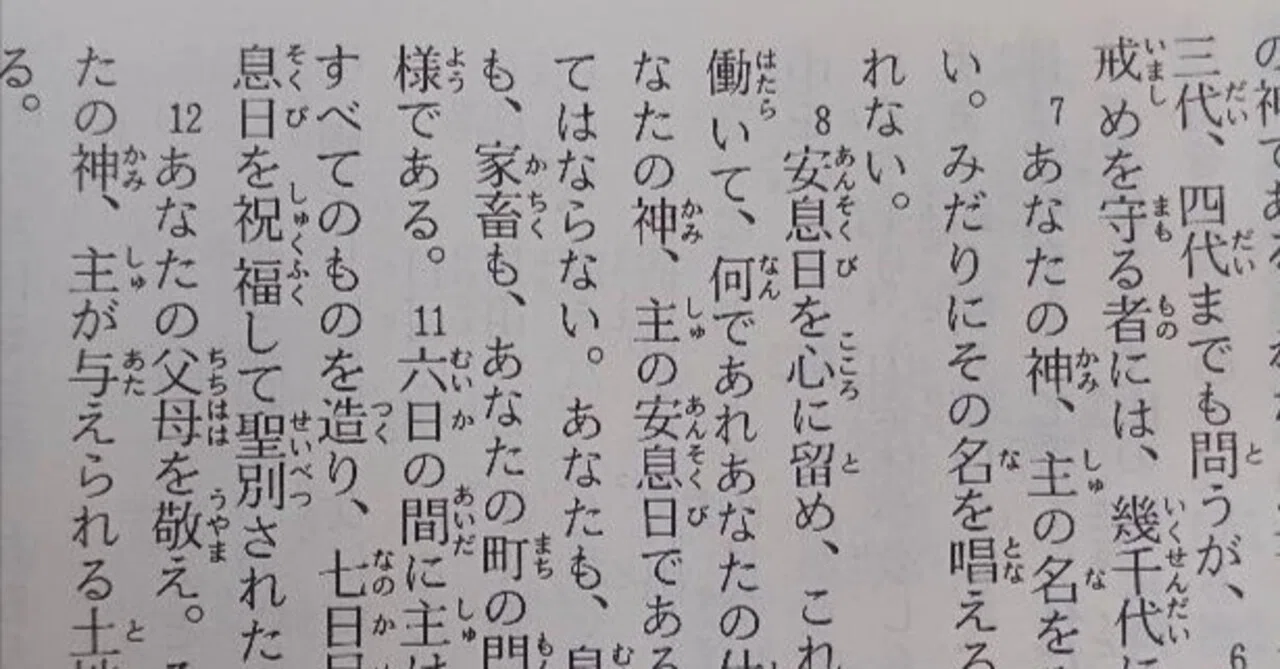 の神である
三代、四代までも問うが、 6
戒めを守る者には、幾千代に
7 あなたの神、主の名を
い。みだりにその名を唱える
れない。
8 安息日を心に留め、これ
働いて、何であれあなたの仕
なたの神、主の安息日である
てはならない。あなたも、息
も、家畜も、あなたの町の門
様である。 11 六日の間に主は
すべてのものを造り、七日目
息日を祝福して聖別された
12 あなたの父母を敬え。
たの神、主が与えられる土地
る。